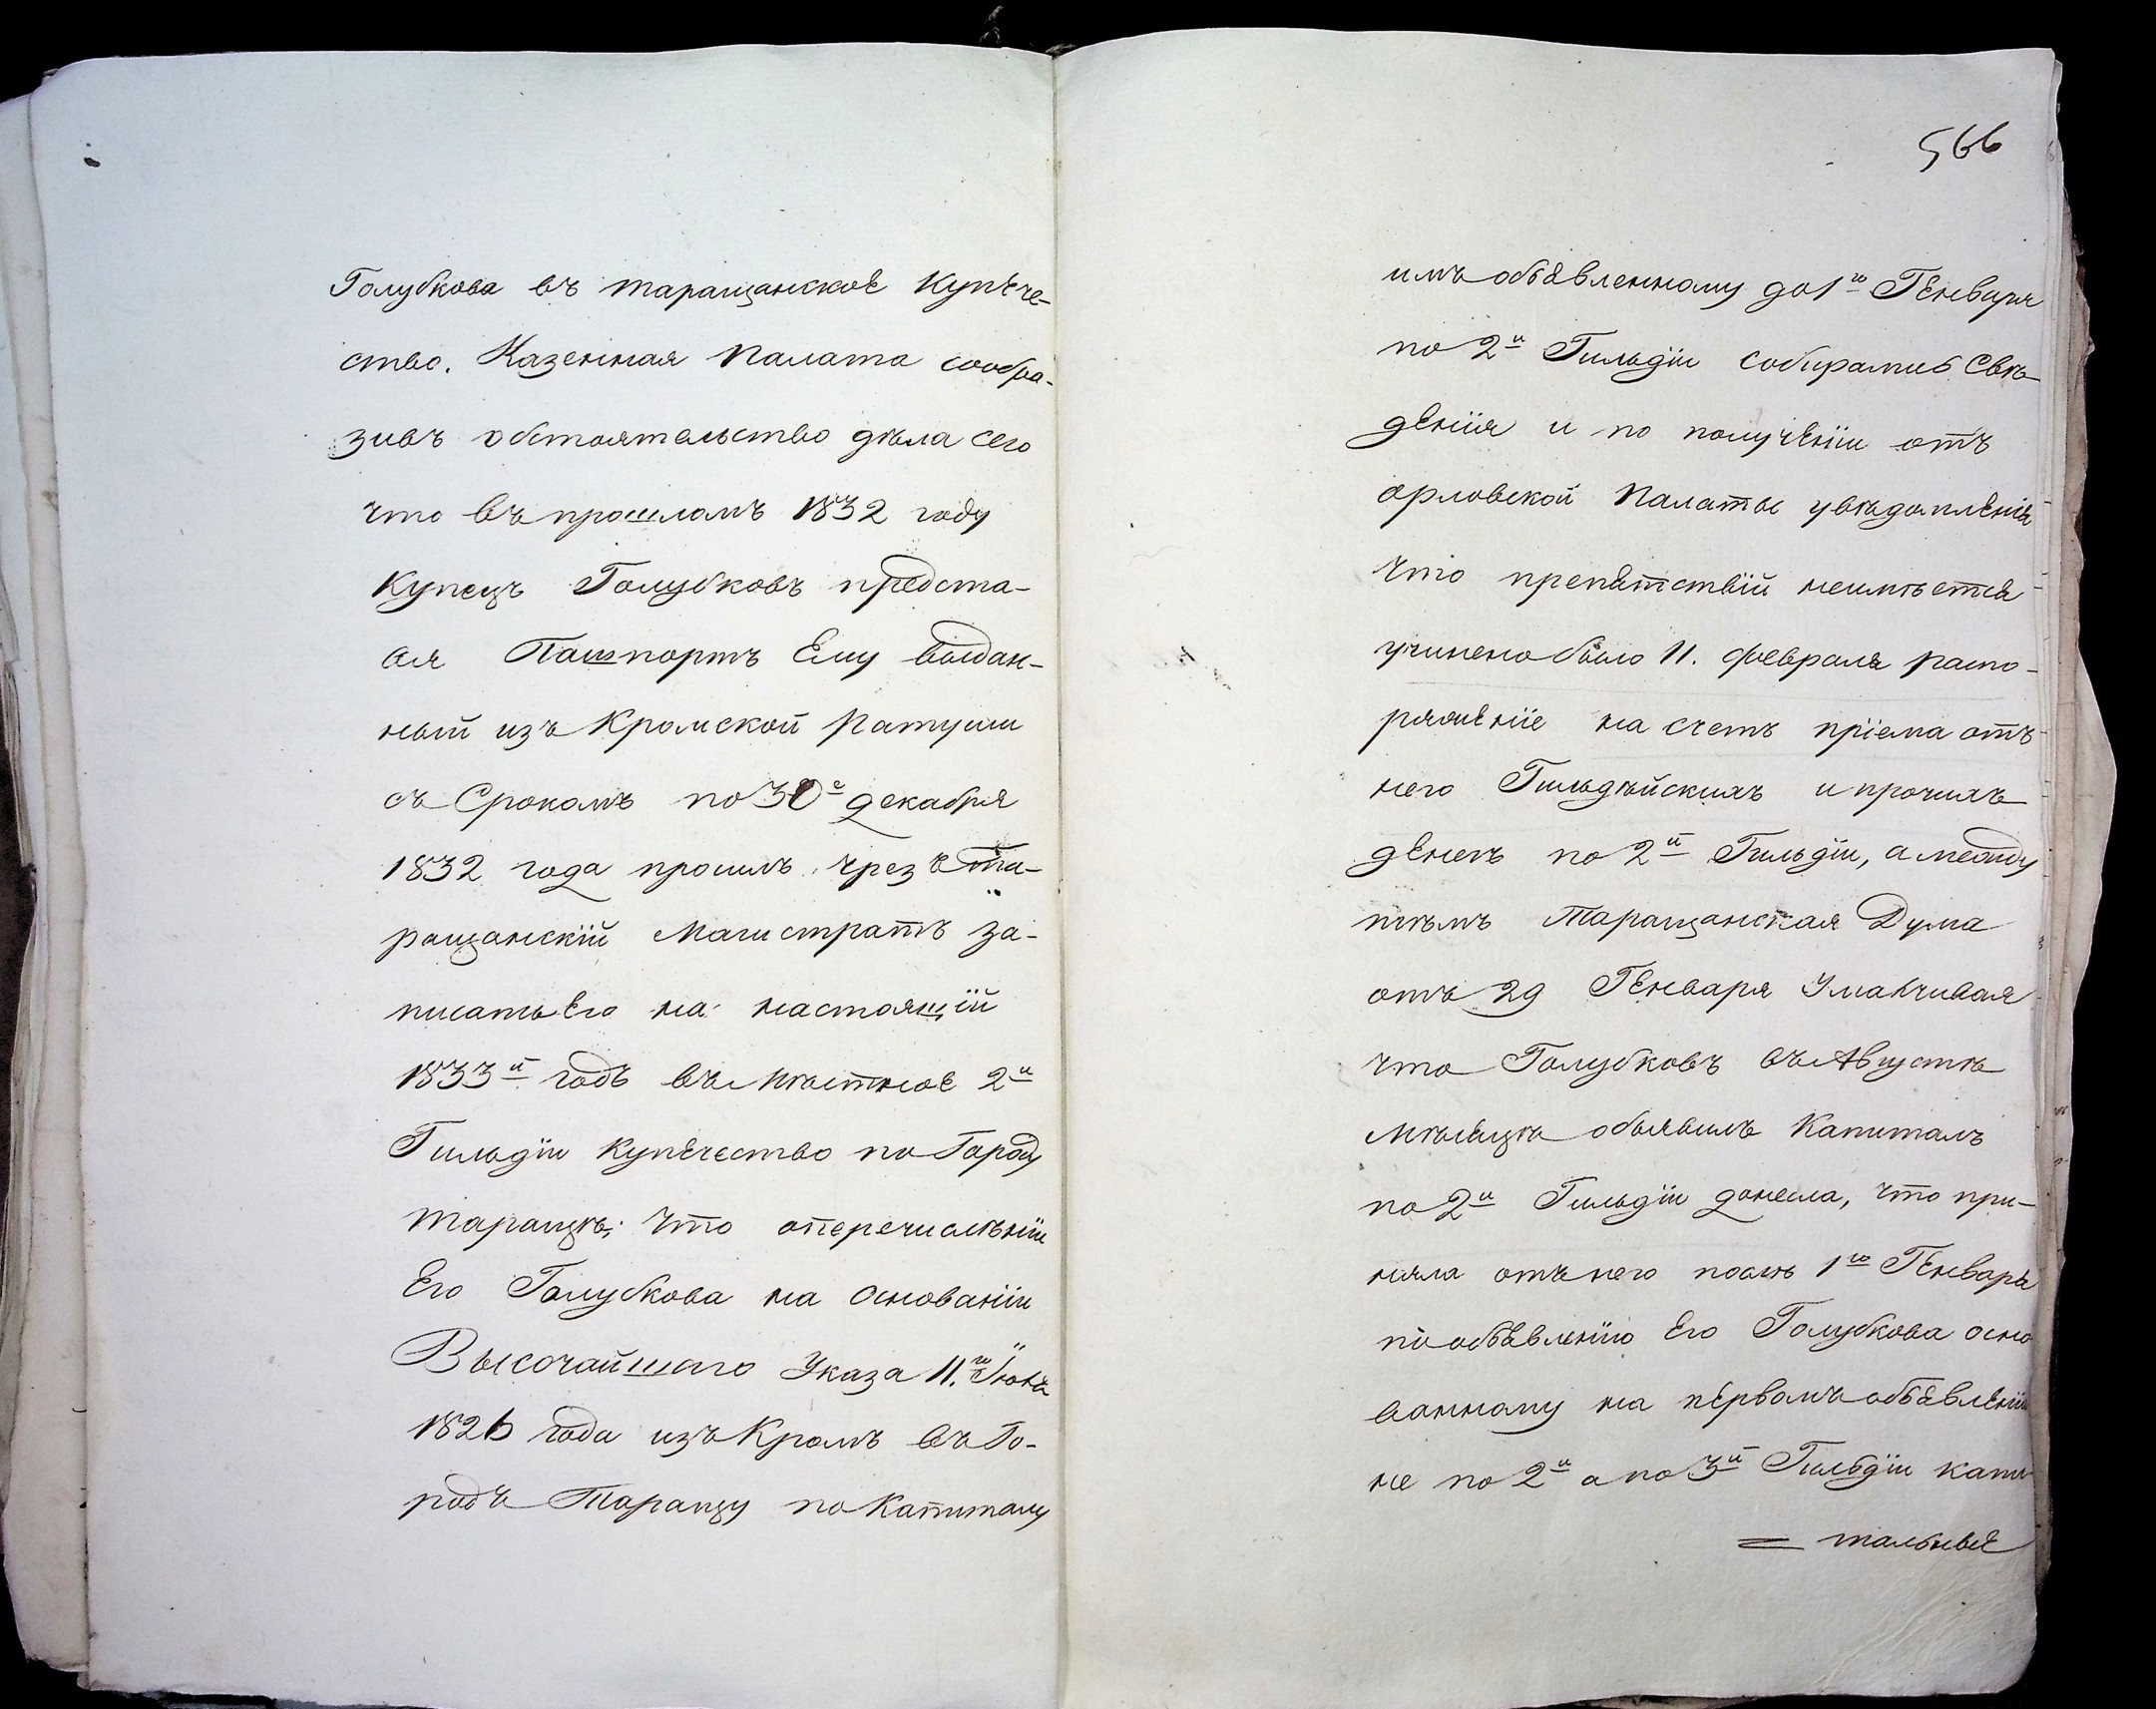 Голубкова въ таращанское Купече-
ство. Казенная Палата сообра-
зивъ обстоятельство дѣла сего
что въ прошломъ 1832 году
Купецъ Голубковъ предста-
вя Пашпортъ Ему выдан-
ный изъ Кромской Ратуши
съ Срокомъ по 30е декабря
1832 года просилъ чрезъ Та-
ращанскій Магистратъ за-
писать Его на настоящій
1833й годъ въ Мѣстное 2й
Гильдіи Купечество по Городу
таращѣ; что оперечисленіи
Его Голубкова на Основаніи
Высочайшаго Указа 11.го Іюня
1826 года изъ Кромъ въ Го-
родъ Таращу по Капиталу
566
имъ объявленному до 1го Генваря
по 2й Гильдіи собирались Свѣ-
денія и по полученіи отъ
орловской Палаты увѣдомленія
что препятствій неимѣется
учинено было 11. февраля распо-
ряженіе на счетъ пріема отъ
него Гильдѣйскихъ и прочихъ
денегъ по 2й Гильдіи, а между
тѣмъ Таращанская Дума
отъ 29 Генваря Умалчивая
что Голубковъ въ Августѣ
Мѣсяцѣ объявилъ Капиталъ
по 2й Гильдіи донесла, что при-
няла отъ него послѣ 1го Генваря
по объявленію Его Голубкова осно
ванному на первомъ объявленіи
не по 2й а по 3й Гильдіи капи
= тальные